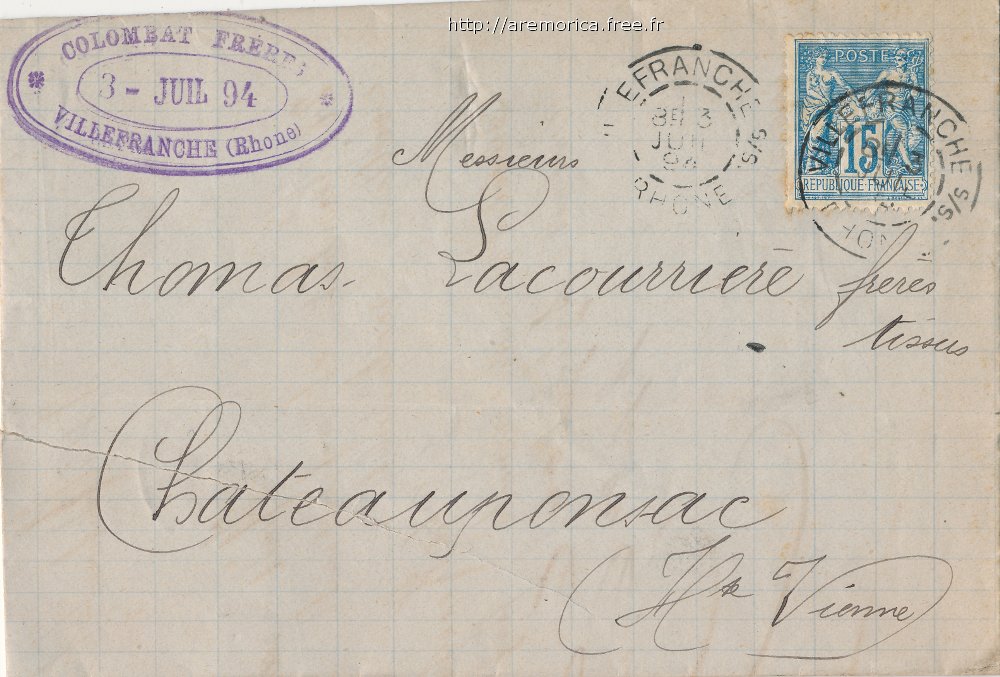 http://aremorica.free.fr
COLOMBAT FRÈRES
3 - JUIL 94
VILLEFRANCHE (Rhone)
EFRANCHE S/S
3
94
RHONE
POSTE
15
REPUBLIQUE FRANÇAISE
VILLEFRANCHE S/S
Messieurs
Thomas Lacourrière frères
tissus
Chateauponsac
Hte Vienne